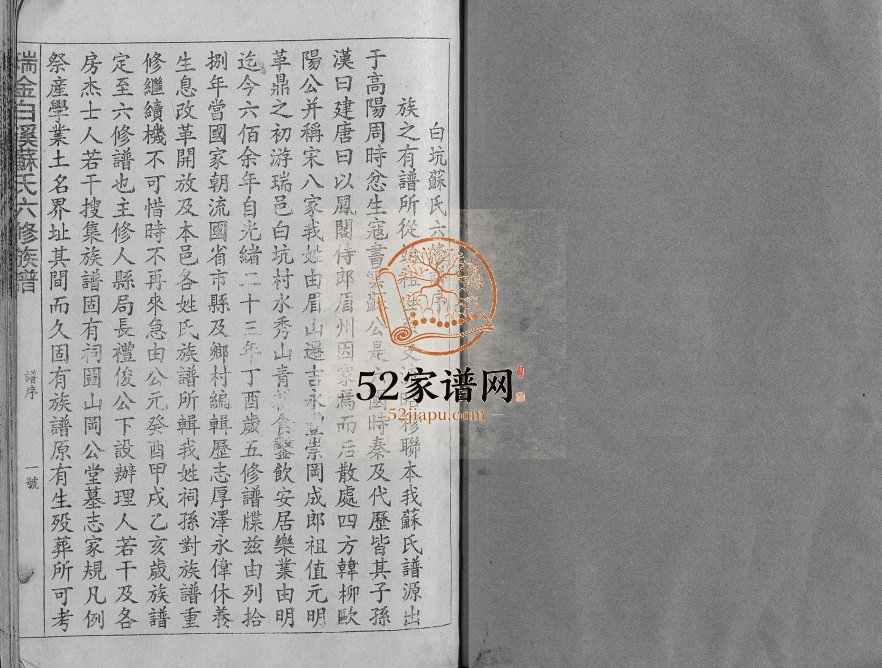 白坑蘇氏六修譜序
族之有譜所從
穆聯本我蘇氏譜源出
于高陽周時忿生寇書雲蘇公是
國時秦及代歷皆其子孫
漢曰建唐曰以鳳閣侍郎眉州因家焉而后散處四方韓柳歐
陽公并稱宋八家我姓由眉山遷吉永豐崇岡成郎祖值元明
革鼎之初游瑞邑白坑村水秀山青耕食鑿飲安居樂業由明
迄今六佰余年自光緒二十三年丁酉歲五修譜牒茲由列拾
捌年當國家朝流國省市縣及鄉村編輯歷志厚澤永偉休養
生息改革開放及本邑各姓氏族譜所輯我姓祠孫對族譜重
修繼續機不可惜時不再來急由公元癸酉甲戌乙亥歲族譜
定至六修譜也主修人縣局長禮俊公下設辦理人若干及各
房杰士人若干搜集族譜固有祠圖山岡公堂墓志家規凡例
祭產學業土名界址其間而久固有族譜原有生歿葬所可考
瑞金白溪蘇氏六修族譜
譜序
一號
52家谱网
52jiapu.com